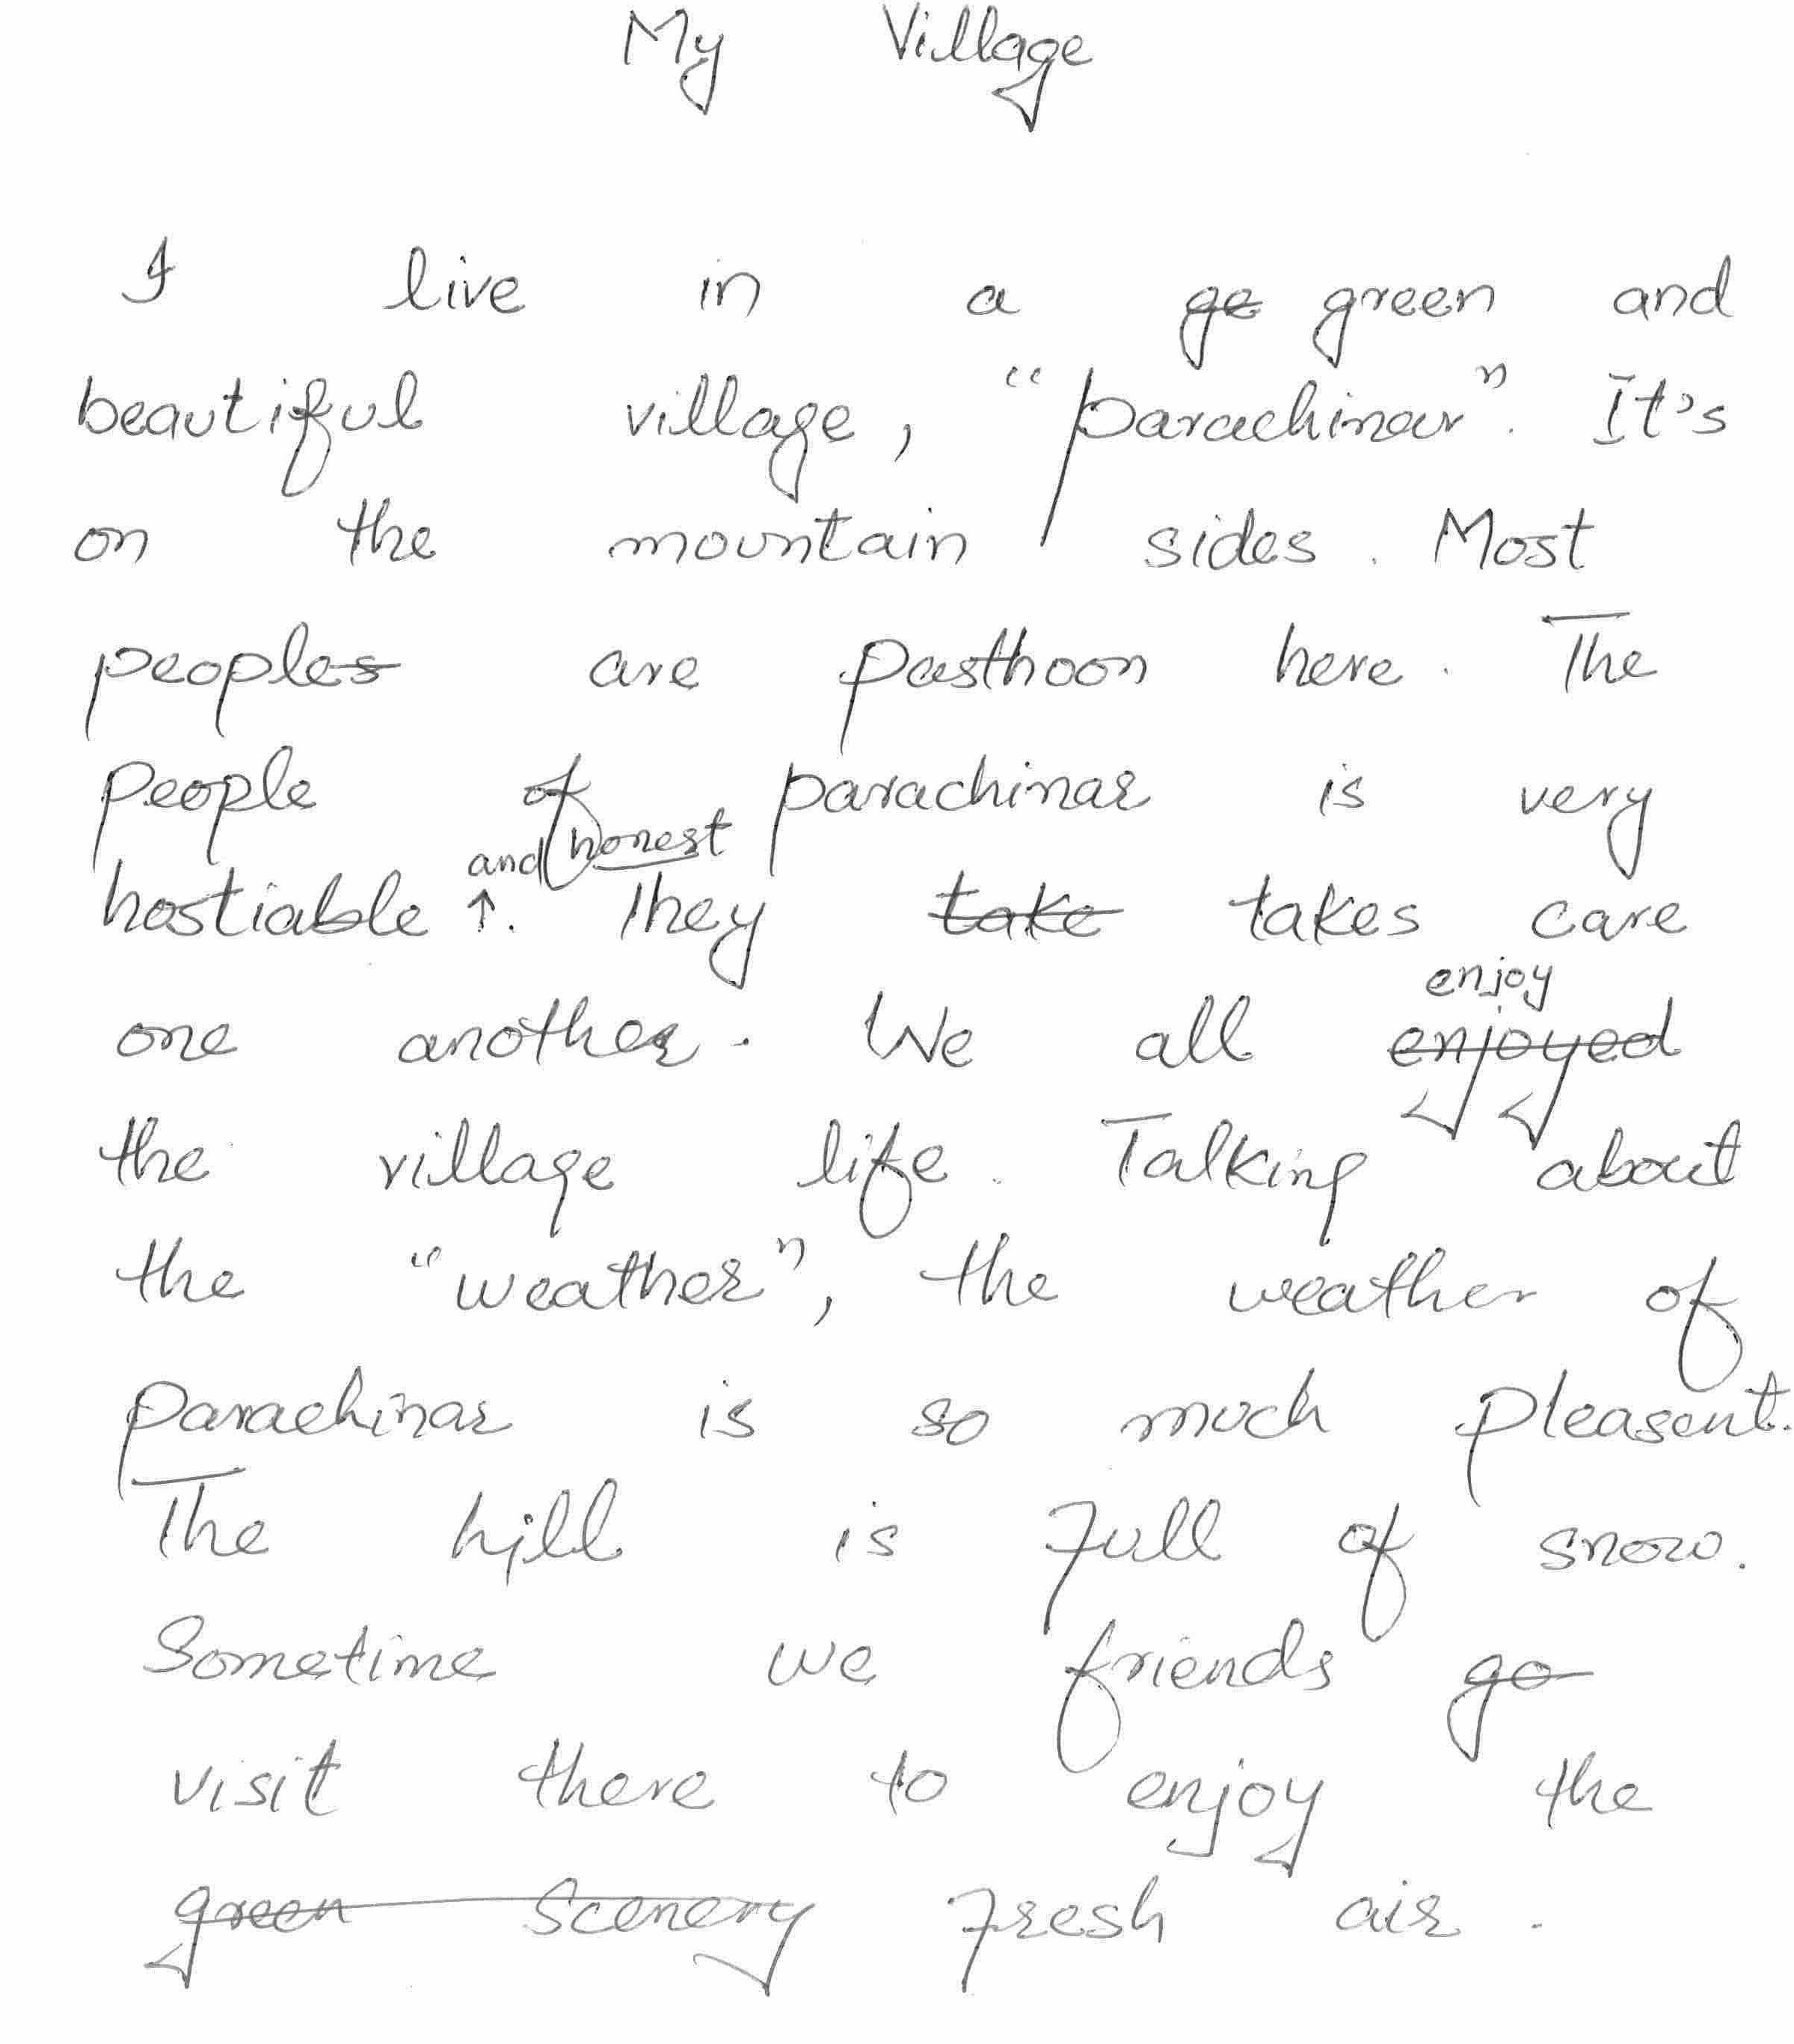 My Village
I live in a ge green and
beautiful village, "parachinar". It's
on the mountain sides. Most
peoples are pasthoon here. The
people of parachinar is very
and honest
hostiable ↑. They take takes care
enjoy
one another. We all enjoyed
the village life. Talking about
the "weather", the weather of
parachinar is so much pleasent.
The hill is Full of snow.
Sometime we friends go
visit there to enjoy the
green Scenery Fresh air.